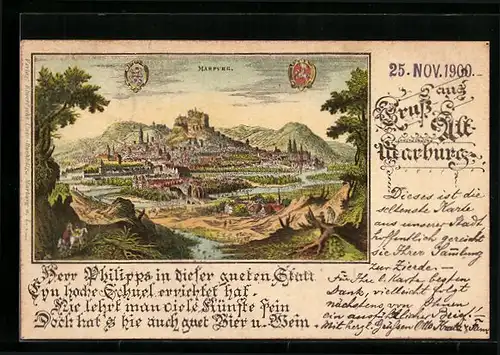 MARPURG.
25. NOV. 1900
Gruß aus
Alt
Marburg
Dieses ist die
schönste Karte
aus unserer Stadt
hoffentlich gereicht
sie Ihrer Samlung
zur Zierde –
Für Ihre l. Karte besten
Dank, vielleicht folgt
nächstens von Ihnen
ein ausführlicher Brief.
Mit herzl. Grüßen Otto
Herr Philipps in dieser gueten Statt
Eyn hoche Schuel errichtet hat.
Hie lehrt man viele Künste fein
Doch hat's hie auch guet Bier u. Wein.